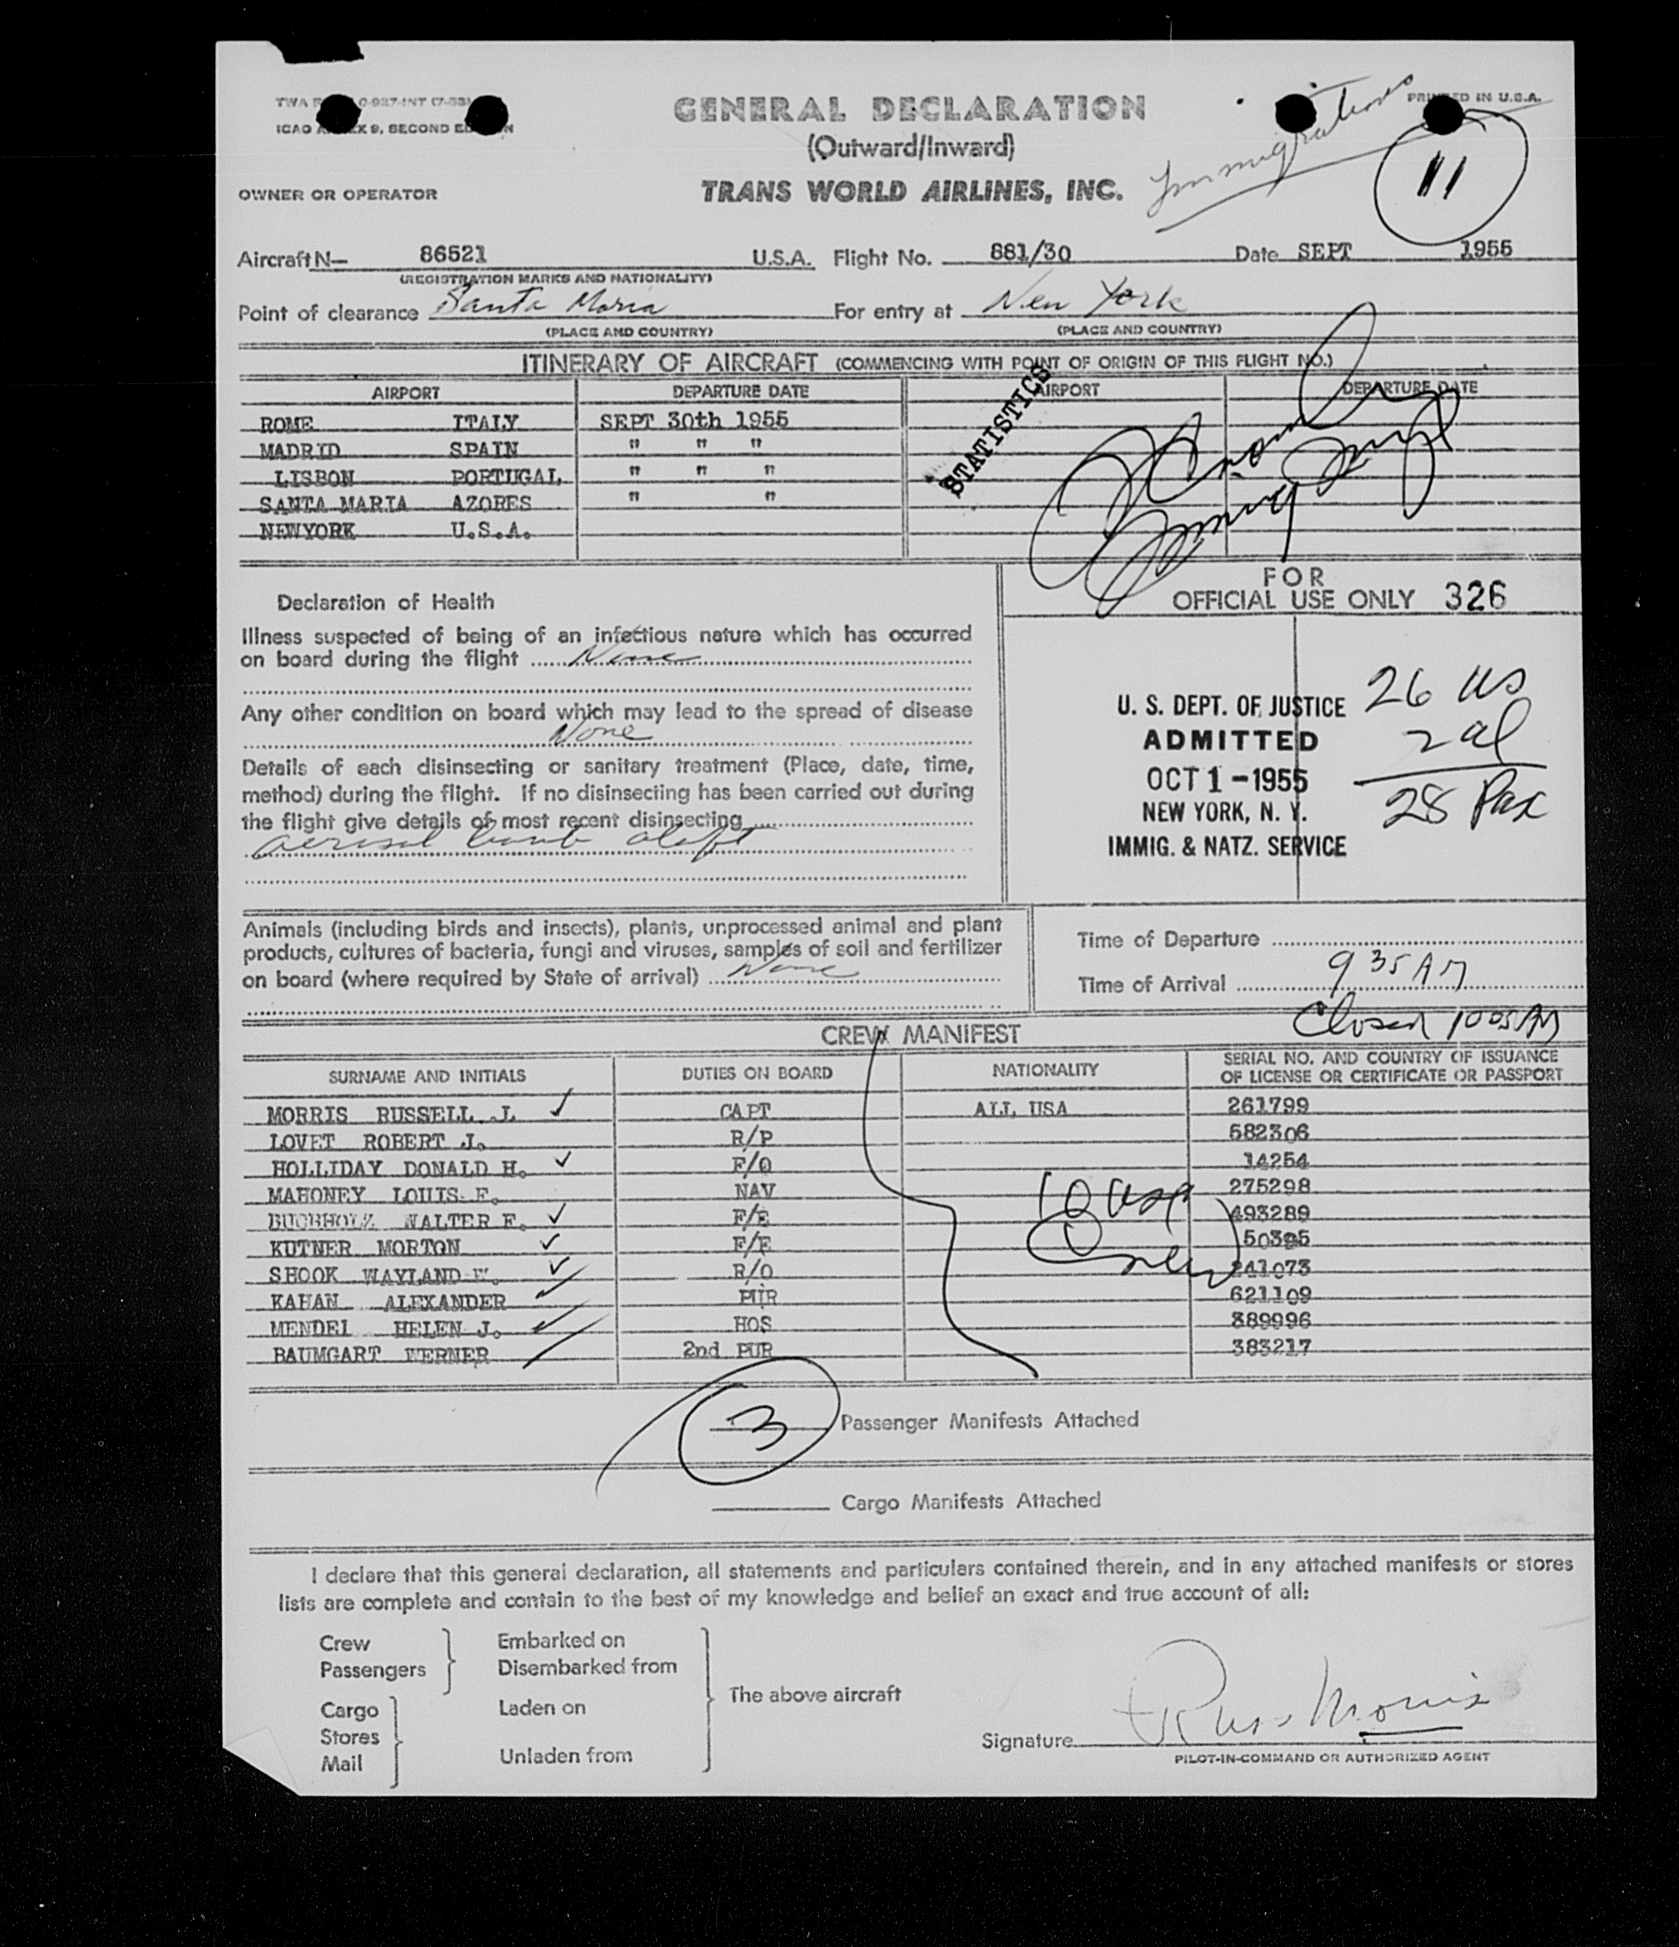 GENERAL DECLARATION
PRINTED IN U.S.A.
(Outward/Inward)
ICAO ANNEX 9, SECOND EDITION
Immigration
11
OWNER OR OPERATOR
TRANS WORLD AIRLINES, INC.
Aircraft N— 86521 U.S.A. Flight No. 881/30 Date SEPT 1955
(REGISTRATION MARKS AND NATIONALITY)
Point of clearance Santa Maria For entry at New York
(PLACE AND COUNTRY) (PLACE AND COUNTRY)
ITINERARY OF AIRCRAFT (COMMENCING WITH POINT OF ORIGIN OF THIS FLIGHT NO.)
AIRPORT DEPARTURE DATE AIRPORT DEPARTURE DATE
ROME ITALY SEPT 30th 1955
MADRID SPAIN " " "
LISBON PORTUGAL " " "
SANTA MARIA AZORES " "
NEWYORK U.S.A.
STATISTICS
FOR
OFFICIAL USE ONLY 326
Declaration of Health
Illness suspected of being of an infectious nature which has occurred
on board during the flight None
Any other condition on board which may lead to the spread of disease
None
Details of each disinsecting or sanitary treatment (Place, date, time,
method) during the flight. If no disinsecting has been carried out during
the flight give details of most recent disinsecting
aerosol bomb aloft
U. S. DEPT. OF JUSTICE
ADMITTED
OCT 1 - 1955
NEW YORK, N. Y.
IMMIG. & NATZ. SERVICE
26 US
2 al
28 Pax
Animals (including birds and insects), plants, unprocessed animal and plant
products, cultures of bacteria, fungi and viruses, samples of soil and fertilizer
on board (where required by State of arrival) None
Time of Departure
Time of Arrival 9 35 AM
Closed 10 05 AM
CREW MANIFEST
SURNAME AND INITIALS DUTIES ON BOARD NATIONALITY SERIAL NO. AND COUNTRY OF ISSUANCE
OF LICENSE OR CERTIFICATE OR PASSPORT
MORRIS RUSSELL J. CAPT ALL USA 261799
LOVET ROBERT J. R/P 582306
HOLLIDAY DONALD H. F/O 14254
MAHONEY LOUIS F. NAV 275298
BUCHHOLZ WALTER F. F/E 493289
KUTNER MORTON F/E 50395
SHOOK WAYLAND W. R/O 241073
KAHAN ALEXANDER PUR 621109
MENDEL HELEN J. HOS 389996
BAUMGART WERNER 2nd PUR 383217
10 USA
Crew
3 Passenger Manifests Attached
Cargo Manifests Attached
I declare that this general declaration, all statements and particulars contained therein, and in any attached manifests or stores
lists are complete and contain to the best of my knowledge and belief an exact and true account of all:
Crew
Passengers
Embarked on
Disembarked from
Cargo
Stores
Mail
Laden on
Unladen from
The above aircraft
Signature Russ Morris
PILOT-IN-COMMAND OR AUTHORIZED AGENT